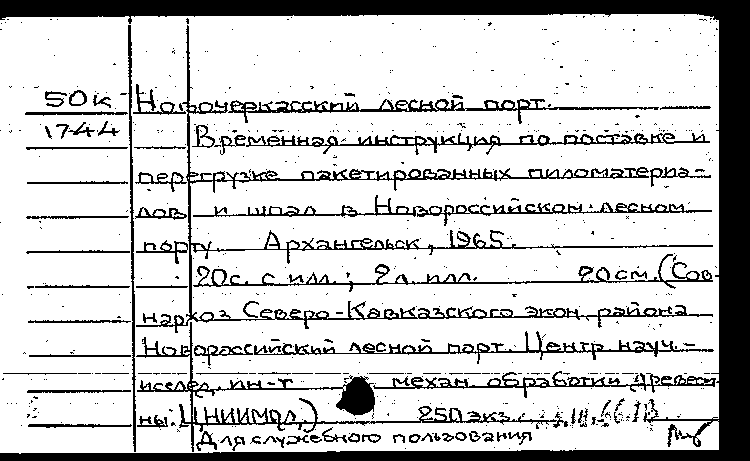 50к Новочеркасский лесной порт.
1744 Временная инструкция по поставке и
перегрузке пакетированных пиломатериа-
лов и шпал в Новороссийском лесном
порту. Архангельск, 1965.
20с. с илл.; 2л. илл. 20см. (Сов-
нархоз Северо-Кавказского экон. района
Новороссийский лесной порт. Центр науч.-
исслед. ин-т механ. обработки древеси-
ны. ЦНИИМОД) 250 экз.
Для служебного пользования